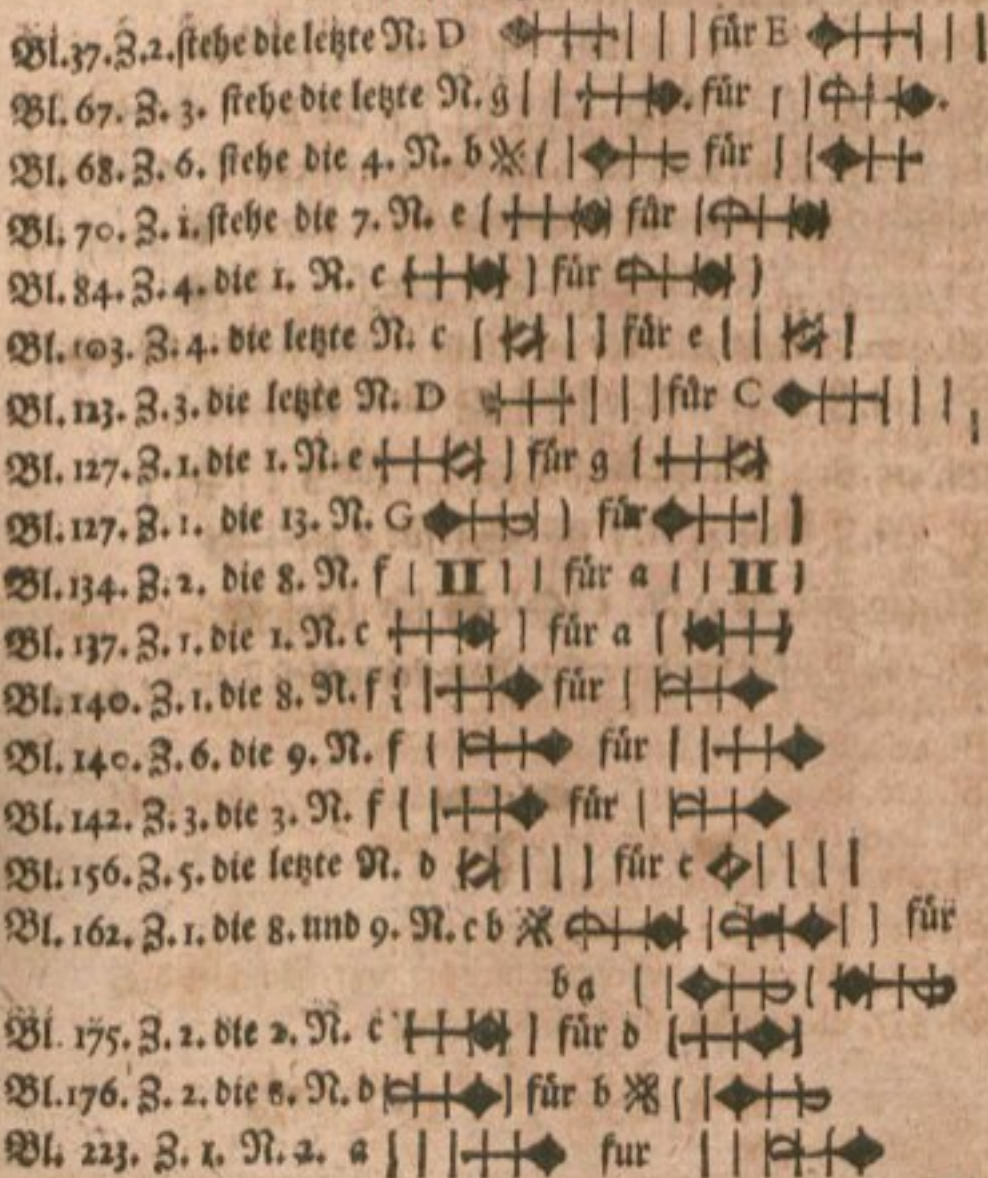 Bl. 37. Z. 2. stehe die letzte N. D für E
Bl. 67. Z. 3. stehe die letzte N. g für
Bl. 68. Z. 6. stehe die 4. N. b für
Bl. 70. Z. 1. stehe die 7. N. e für
Bl. 84. Z. 4. die 1. N. c für
Bl. 103. Z. 4. die letzte N. c für e
Bl. 123. Z. 3. die letzte N. D für C
Bl. 127. Z. 1. die 1. N. e für g
Bl. 127. Z. 1. die 13. N. G für
Bl. 134. Z. 2. die 8. N. f für a
Bl. 137. Z. 1. die 1. N. c für a
Bl. 140. Z. 1. die 8. N. f für
Bl. 140. Z. 6. die 9. N. f für
Bl. 142. Z. 3. die 3. N. f für
Bl. 156. Z. 5. die letzte N. d für c
Bl. 162. Z. 1. die 8. unnd 9. N. c b für
b a
Bl. 175. Z. 2. die 2. N. c für d
Bl. 176. Z. 2. die 8. N. d für b
Bl. 223. Z. 1. N. 2. a fur